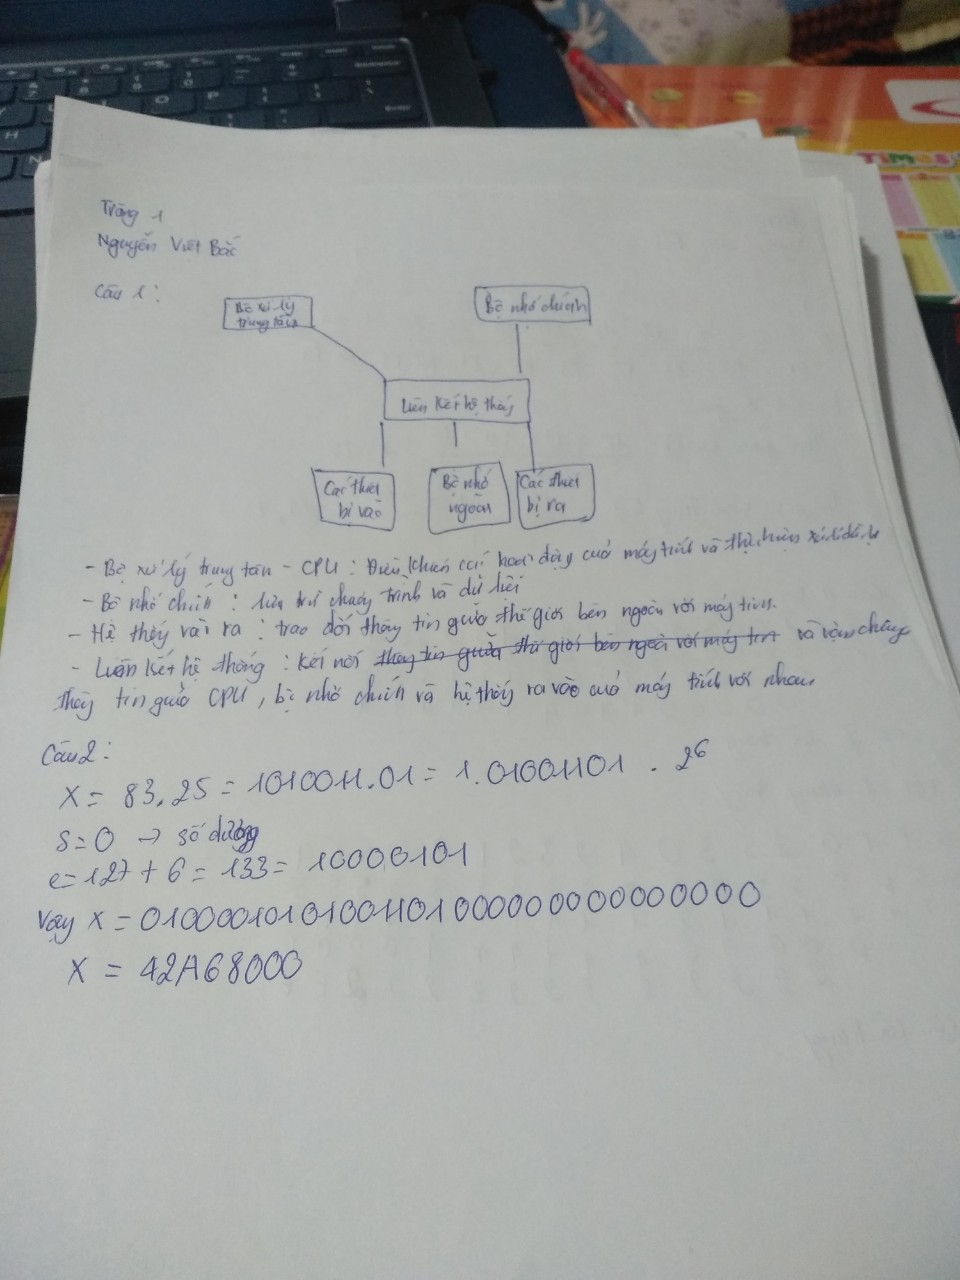 Trang 1
Nguyễn Việt Bắc
Câu 1:
Bộ xử lý
trung tâm
Bộ nhớ chính
Liên kết hệ thống
Các thiết
bị vào
Bộ nhớ
ngoài
Các thiết
bị ra
- Bộ xử lý trung tâm - CPU: Điều khiển các hoạt động của máy tính và thực hiện xử lí dữ liệu
- Bộ nhớ chính : lưu trữ chương trình và dữ liệu
- Hệ thống vào ra : trao đổi thông tin giữa thế giới bên ngoài với máy tính.
- Liên kết hệ thống : kết nối thông tin giữa thế giới bên ngoài với máy tính và vận chuyển
thông tin giữa CPU, bộ nhớ chính và hệ thống ra vào của máy tính với nhau
Câu 2:
X = 83,25 = 1010011.01 = 1.01001101 . 2^6
S=0 → số dương
e=127 + 6 = 133= 10000101
Vậy X = 01000010101001101000000000000000
X = 42A68000
TIMES